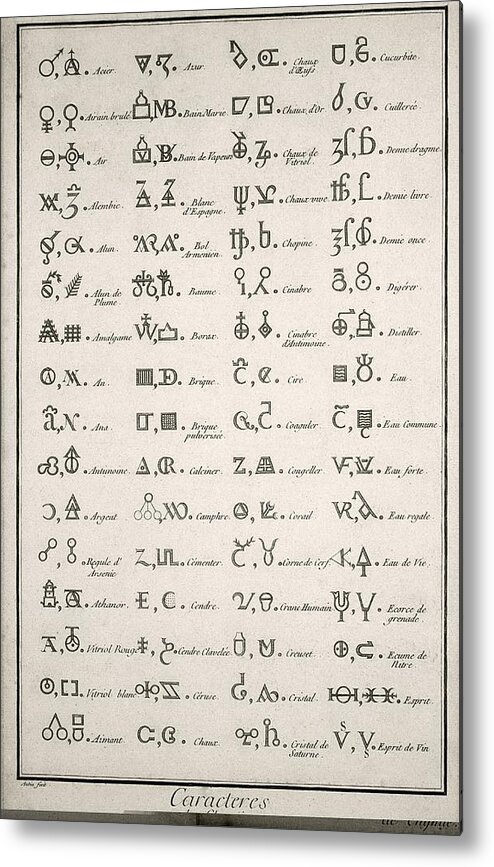 Acier.
Airain brulé
Air
Alembic.
Alun.
Alun de
Plume.
Amalgame
An.
Ana.
Antimoine.
Argent.
Regule d'
Arsenic
Athanor.
Vitriol Rouge
Vitriol blanc
Aimant.
Azur.
Bain Marie.
Bain de Vapeur
Blanc
d'Espagne.
Bol
Armenien.
Baume.
Borax.
Brique.
Brique
pulverisée.
Calciner.
Camphre.
Cémenter.
Cendre.
Cendre Clavelée
Céruse.
Chaux.
Chaux
d'Œufs
Chaux d'Or
Chaux de
Vitriol.
Chaux vive.
Chopine.
Cinabre
Cinabre
d'Antimoine.
Cire
Coaguler.
Congeller
Corail.
Corne de Cerf.
Crane Humain
Creuset.
Cristal.
Cristal de
Saturne.
Cucurbite.
Cuillerée.
Demie dragme.
Demie livre.
Demie once.
Digérer.
Distiller.
Eau.
Eau Commune.
Eau forte.
Eau regale
Eau de Vie.
Ecorce de
grenade.
Ecume de
Nitre.
Esprit.
Esprit de Vin
Caracteres